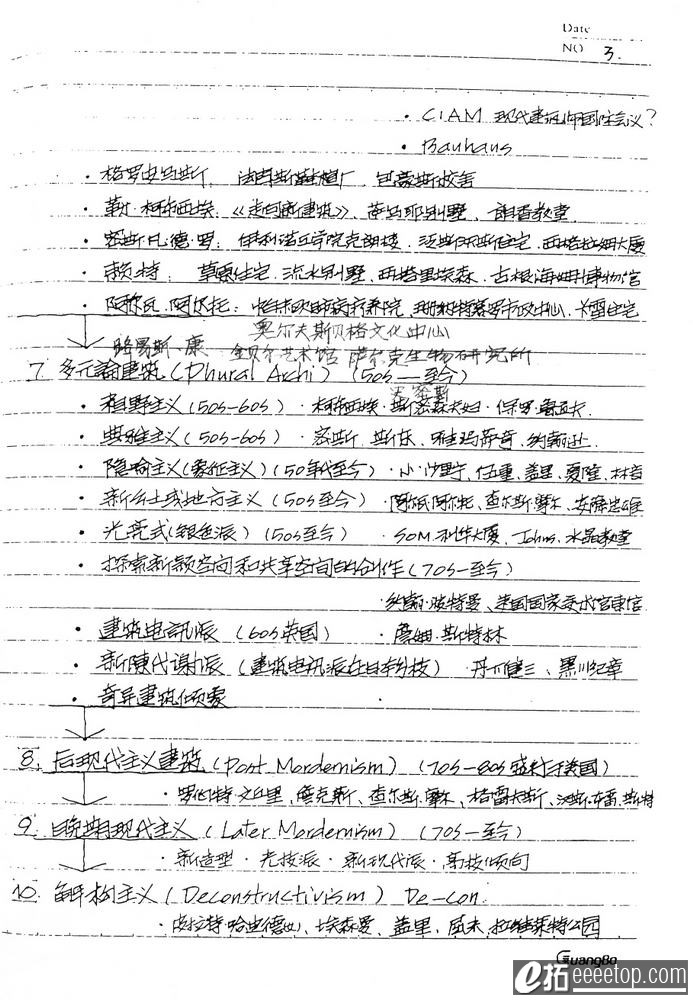 Date
NO 3.
· CIAM 现代建筑师国际会议?
· Bauhaus
· 格罗皮乌斯, 法古斯鞋楦厂, 包豪斯校舍
· 勒·柯布西埃, 《走向新建筑》, 萨伏耶别墅, 朗香教堂
· 密斯·凡·德·罗: 伊利诺工学院克朗楼, 范斯沃斯住宅, 西格拉姆大厦
· 赖特: 草原住宅, 流水别墅, 西塔里埃森, 古根海姆博物馆
· 阿尔瓦·阿尔托: 帕米欧肺病疗养院, 珊纳特赛罗市政中心, 卡雷住宅
奥尔夫斯贝格文化中心
路易斯·康 金贝尔艺术馆 萨尔克生物研究所
7. 多元论建筑 (Phural Archi) (50s — 至今)
· 粗野主义 (50s-60s) · 柯布西埃 · 史密斯 斯密森夫妇 · 保罗·鲁道夫
· 典雅主义 (50s-60s) · 密斯, 斯东, 雅玛萨奇, 约翰逊
· 隐喻主义 (象征主义) (50年代至今) · 小沙里宁, 伍重, 盖里, 夏隆, 林肯
· 新乡土或地方主义 (50s至今) · 阿尔瓦阿尔托, 查尔斯摩尔, 安藤忠雄
· 光亮式 (银色派) (50s至今) · SOM利华大厦, Johns, 水晶教堂
· 探索新颖空间和共享空间的创作 (70s-至今)
· 约翰·波特曼、美国国家美术馆东馆
· 建筑电讯派 (60s英国) · 詹姆·斯特林
· 新陈代谢派 (建筑电讯派在日本分枝) · 丹下健三、黑川纪章
· 奇异建筑倾象
8. 后现代主义建筑 (Post Mordernism) (70s-80s盛行于美国)
· 罗伯特·文丘里, 詹克斯, 查尔斯·摩尔, 格雷夫斯, 汤姆·斯特
9. 晚期现代主义 (Later Mordernism) (70s-至今)
· 新造型 · 光技派 · 新现代派 · 高技倾向
10. 解构主义 (Deconstructivism) De-con.
· 皮拉特·哈迪德(女), 埃森曼, 盖里, 屈米, 拉维莱特公园
GuangBo
e拓 eeeetop.com